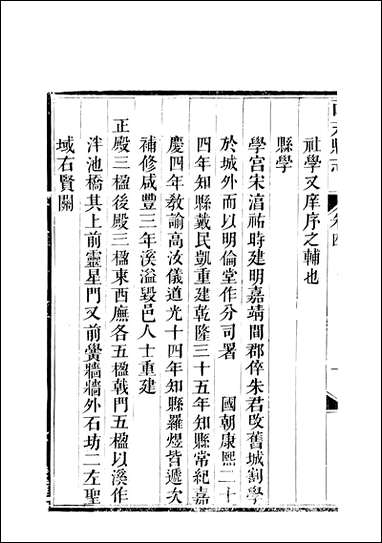 社學又庠序之輔也
縣學
學宮宋淳祐時建明嘉靖間郡倅朱君改舊城割學
於城外而以明倫堂作分司署 國朝康熙二十
四年知縣戴民凱重建乾隆三十五年知縣常紀嘉
慶四年敎諭高汝儀道光十四年知縣羅煜皆遞次
補修咸豐三年溪溢毀邑人士重建
正殿三楹後殿三楹東西廡各五楹戟門五楹以溪作
泮池橋其上前靈星門又前黌牆牆外石坊二左聖
域右賢關